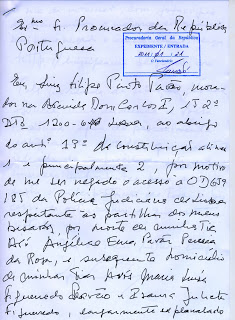 Exmo Sr. Procurador da República
Portuguesa
Procuradoria Geral da República
EXPEDIENTE / ENTRADA
O Funcionário
Eu, Luiz Filipe
na Avenida Dom Carlos I,
1200- Lisboa, ao abrigo
do artº 13º da Constituição alínea
1 e principalmente 2, por motivo
de me ser negado o acesso à
da Polícia Judiciária de Lisboa
respeitante às partilhas dos meus
bisavós, por morte de minha Tia
Avó Angélica Ema Pavão Pereira
da Rosa, e subsequente homicídio
de minhas Tias Avós Maria Luísa
Figueiredo Pavão e Isaura Julieta
Figueiredo, largamente explanado